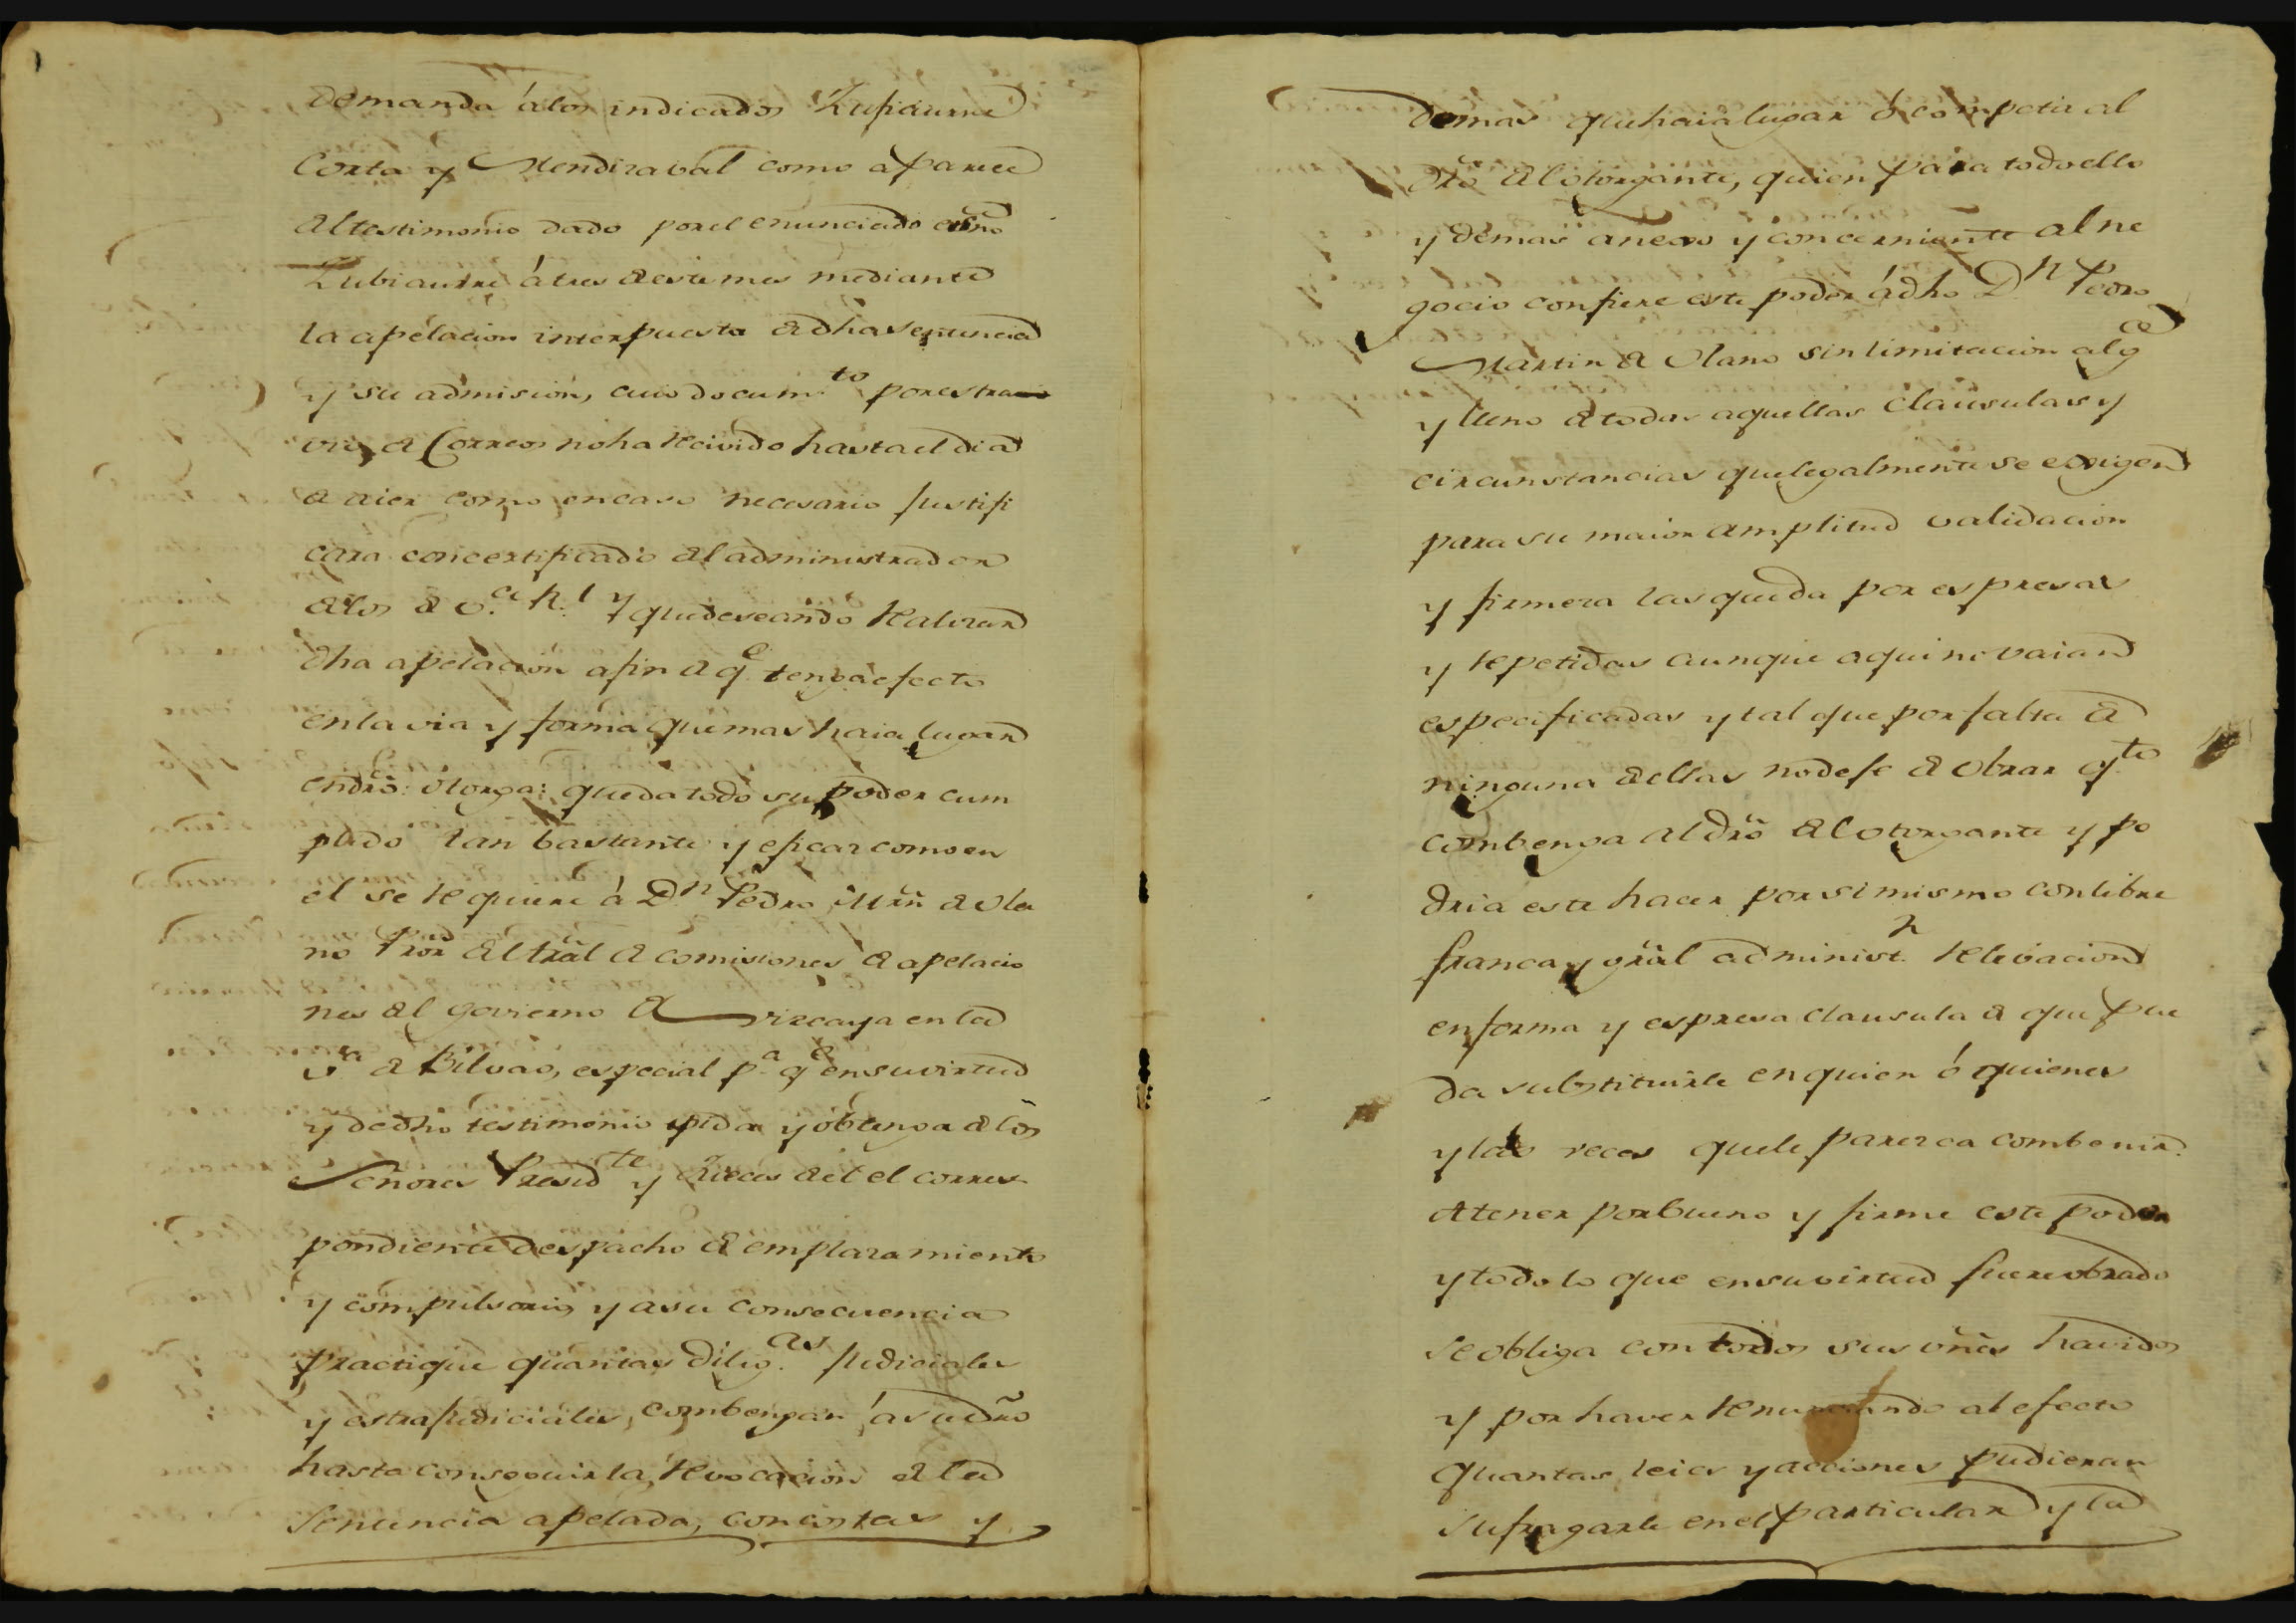 demanda á los indicados Zupiaurre
Corta y Mendizaval como aparece
del testimonio dado por el enunciado essno
Zubiaurre á tres de este mes mediante
la apelacion interpuesta de dha sentencia
y su admision, cuio docum.to por estra
vio de Correos no ha recivido hasta el dia
de aier como en caso necesario justifi
cara con certificado del administrador
de los de v.a R.l y que deseando realizar
dha apelacion a fin de q.e tenga efecto
en la via y forma que mas haia lugar
en dro: otorga: que da todo su poder cum
plido tan bastante y eficaz como en
el se requiere á D.n Pedro Mrñ de Ola
no Pror del tral de comisiones de apelacio
nes del govierno de Vizcaya en la
v.a de Bilvao, especial p.a q.e en su virtud
y de dho testimonio pida y obtenga de los
Señores Presid.te y Jueces de el el corres
pondiente despacho de emplazamiento
y compulsorio y a su consecuencia
practique quantas dilig.as judiciales
y estrajudiciales combengan á su dro
hasta conseguir la revocacion de la
sentencia apelada, con costas y
demas que haia lugar ó competa al
dro del otorgante, quien para todo ello
y demas anexo y concerniente al ne
gocio confiere este poder á dho D.n Pedro
Martin de Olano sin limitacion alg.a
y lleno de todas aquellas clausulas y
circunstancias que legalmente se exigen
para su maior amplitud validacion
y firmeza las que da por espresas
y repetidas aunque aqui no vaian
especificadas y tal que por falta de
ninguna de ellas no deje de obrar q.to
combenga al dro del otorgante y po
dria este hacer por si mismo con libre
franca y gral administ.n relevacion
en forma y espresa clausula de que pue
da substituirle en quien ó quienes
y las veces que le parezca combenir.
A tener por bueno y firme este poder
y todo lo que en su virtud fuere obrado
se obliga con todos sus vñes havidos
y por haver renunciando al efecto
quantas leies y acciones pudieran
sufragarle en el particular y la